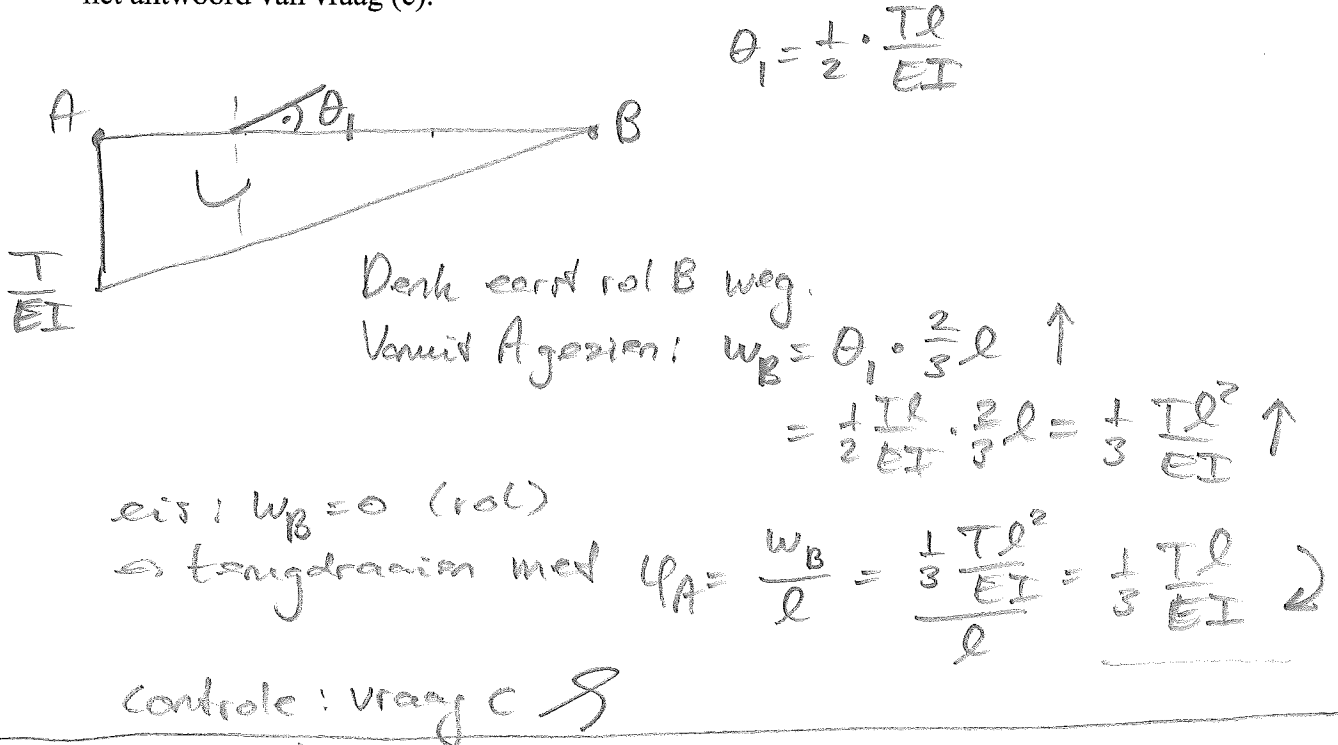 het antwoord van vraag (c).
θ₁ = 1/2 · Tl/EI
A θ₁ B
T/EI
Denk eerst rol B weg.
Vanuit A gezien: w_B = θ₁ · 2/3 l ↑
= 1/2 Tl/EI · 2/3 l = 1/3 Tl²/EI ↑
eis: w_B = 0 (rol)
⇒ terugdraaien met φ_A = w_B/l = (1/3 Tl²/EI)/l = 1/3 Tl/EI
controle: vraag c